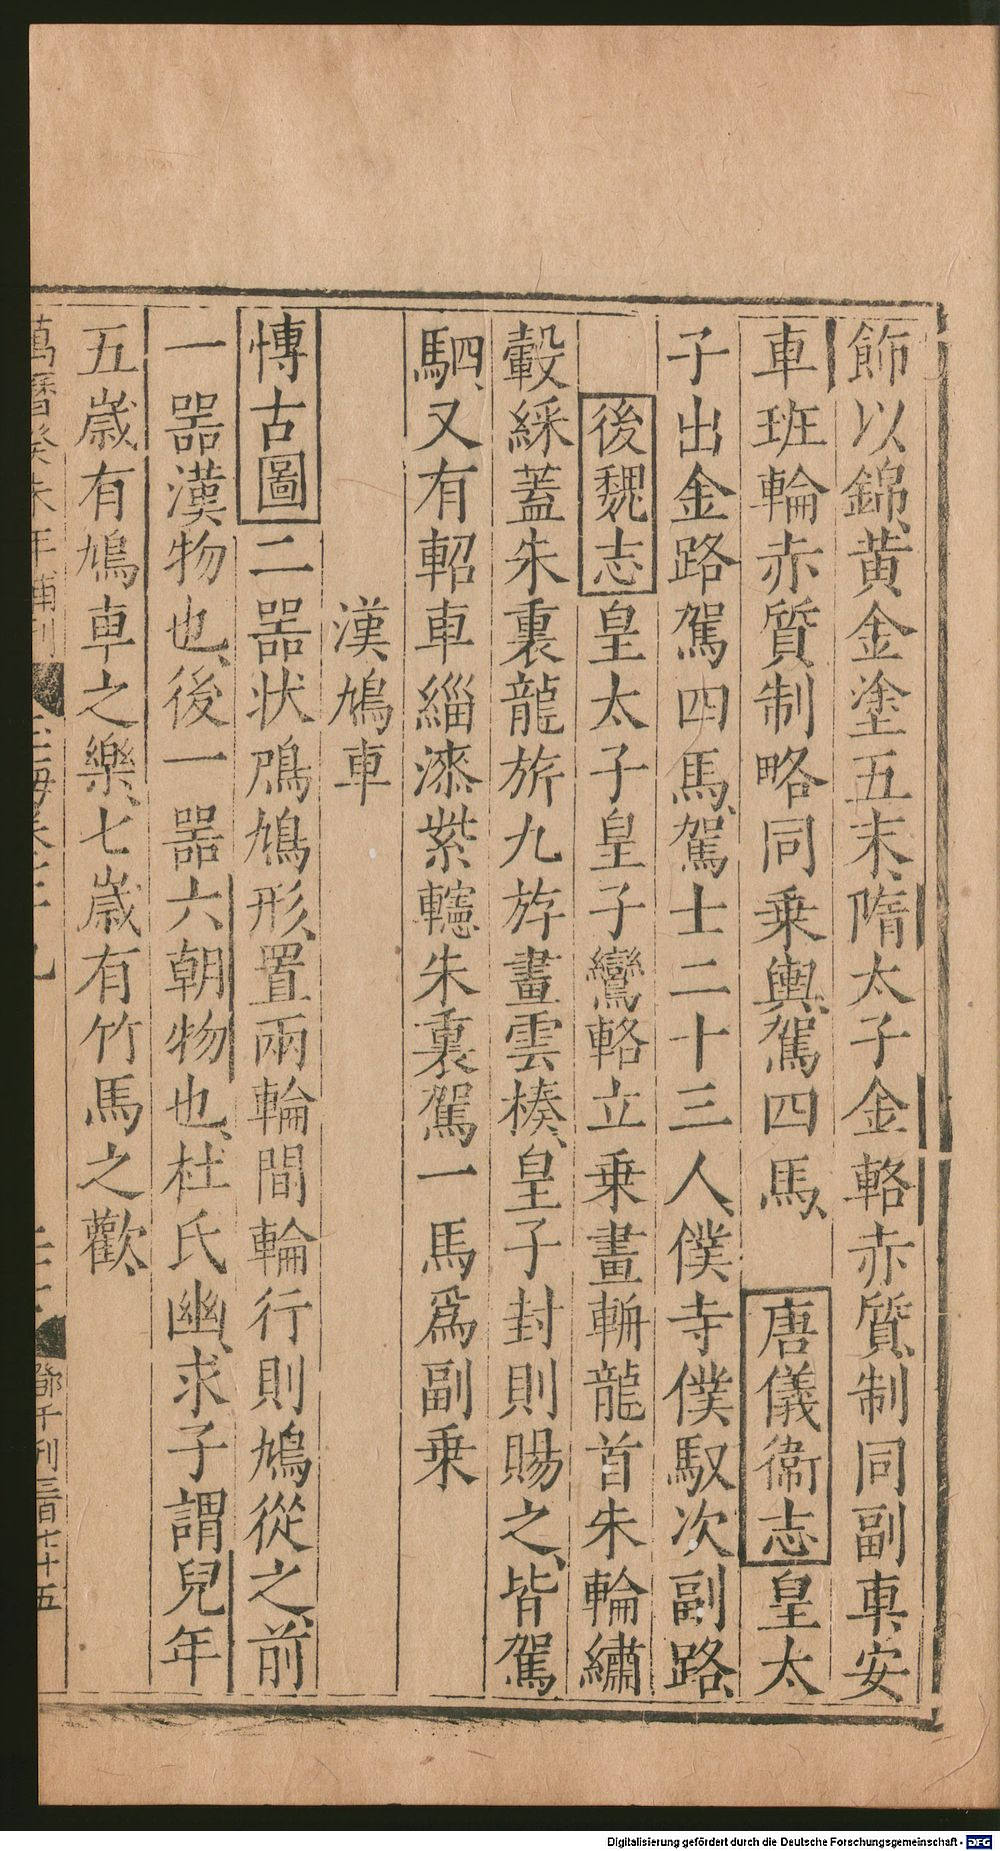 飾以錦黄金塗五末隋太子金輅赤質制同副車安
車班輪赤質制略同乗輿駕四馬 唐儀衞志皇太
子出金路駕四馬駕士二十三人僕寺僕馭次副路
後魏志皇太子皇子鸞輅立乗畫輧龍首朱輪繡
轂綵蓋朱裏龍旂九斿畫雲榛皇子封則賜之皆駕
駟又有軺車緇漆紫轓朱裏駕一馬爲副乗
漢鳩車
愽古圖二噐状鳲鳩形置兩輪間輪行則鳩從之前
一噐漢物也後一噐六朝物也杜氏幽求子謂兒年
五歲有鳩車之樂七歲有竹馬之歡
萬曆癸未年補刊
鄧千刊三百七十五
Digitalisierung gefördert durch die Deutsche Forschungsgemeinschaft - DFG